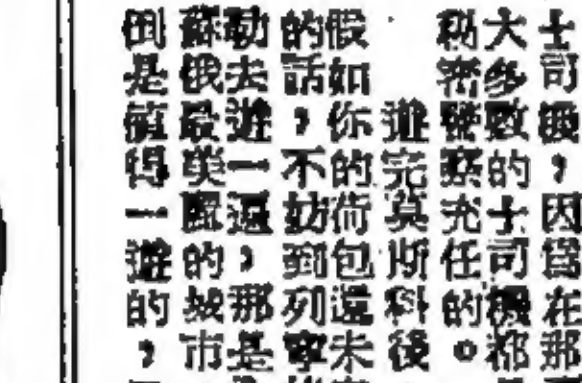 士司機，因爲在那
大多數的士司機都
秘密警察充任的。
遊完莫斯科後
假如你的荷包還未
的話，不妨到列寧
勒去遊一遍，那是
蘇俄最美麗的城市
倒是值得一遊的，